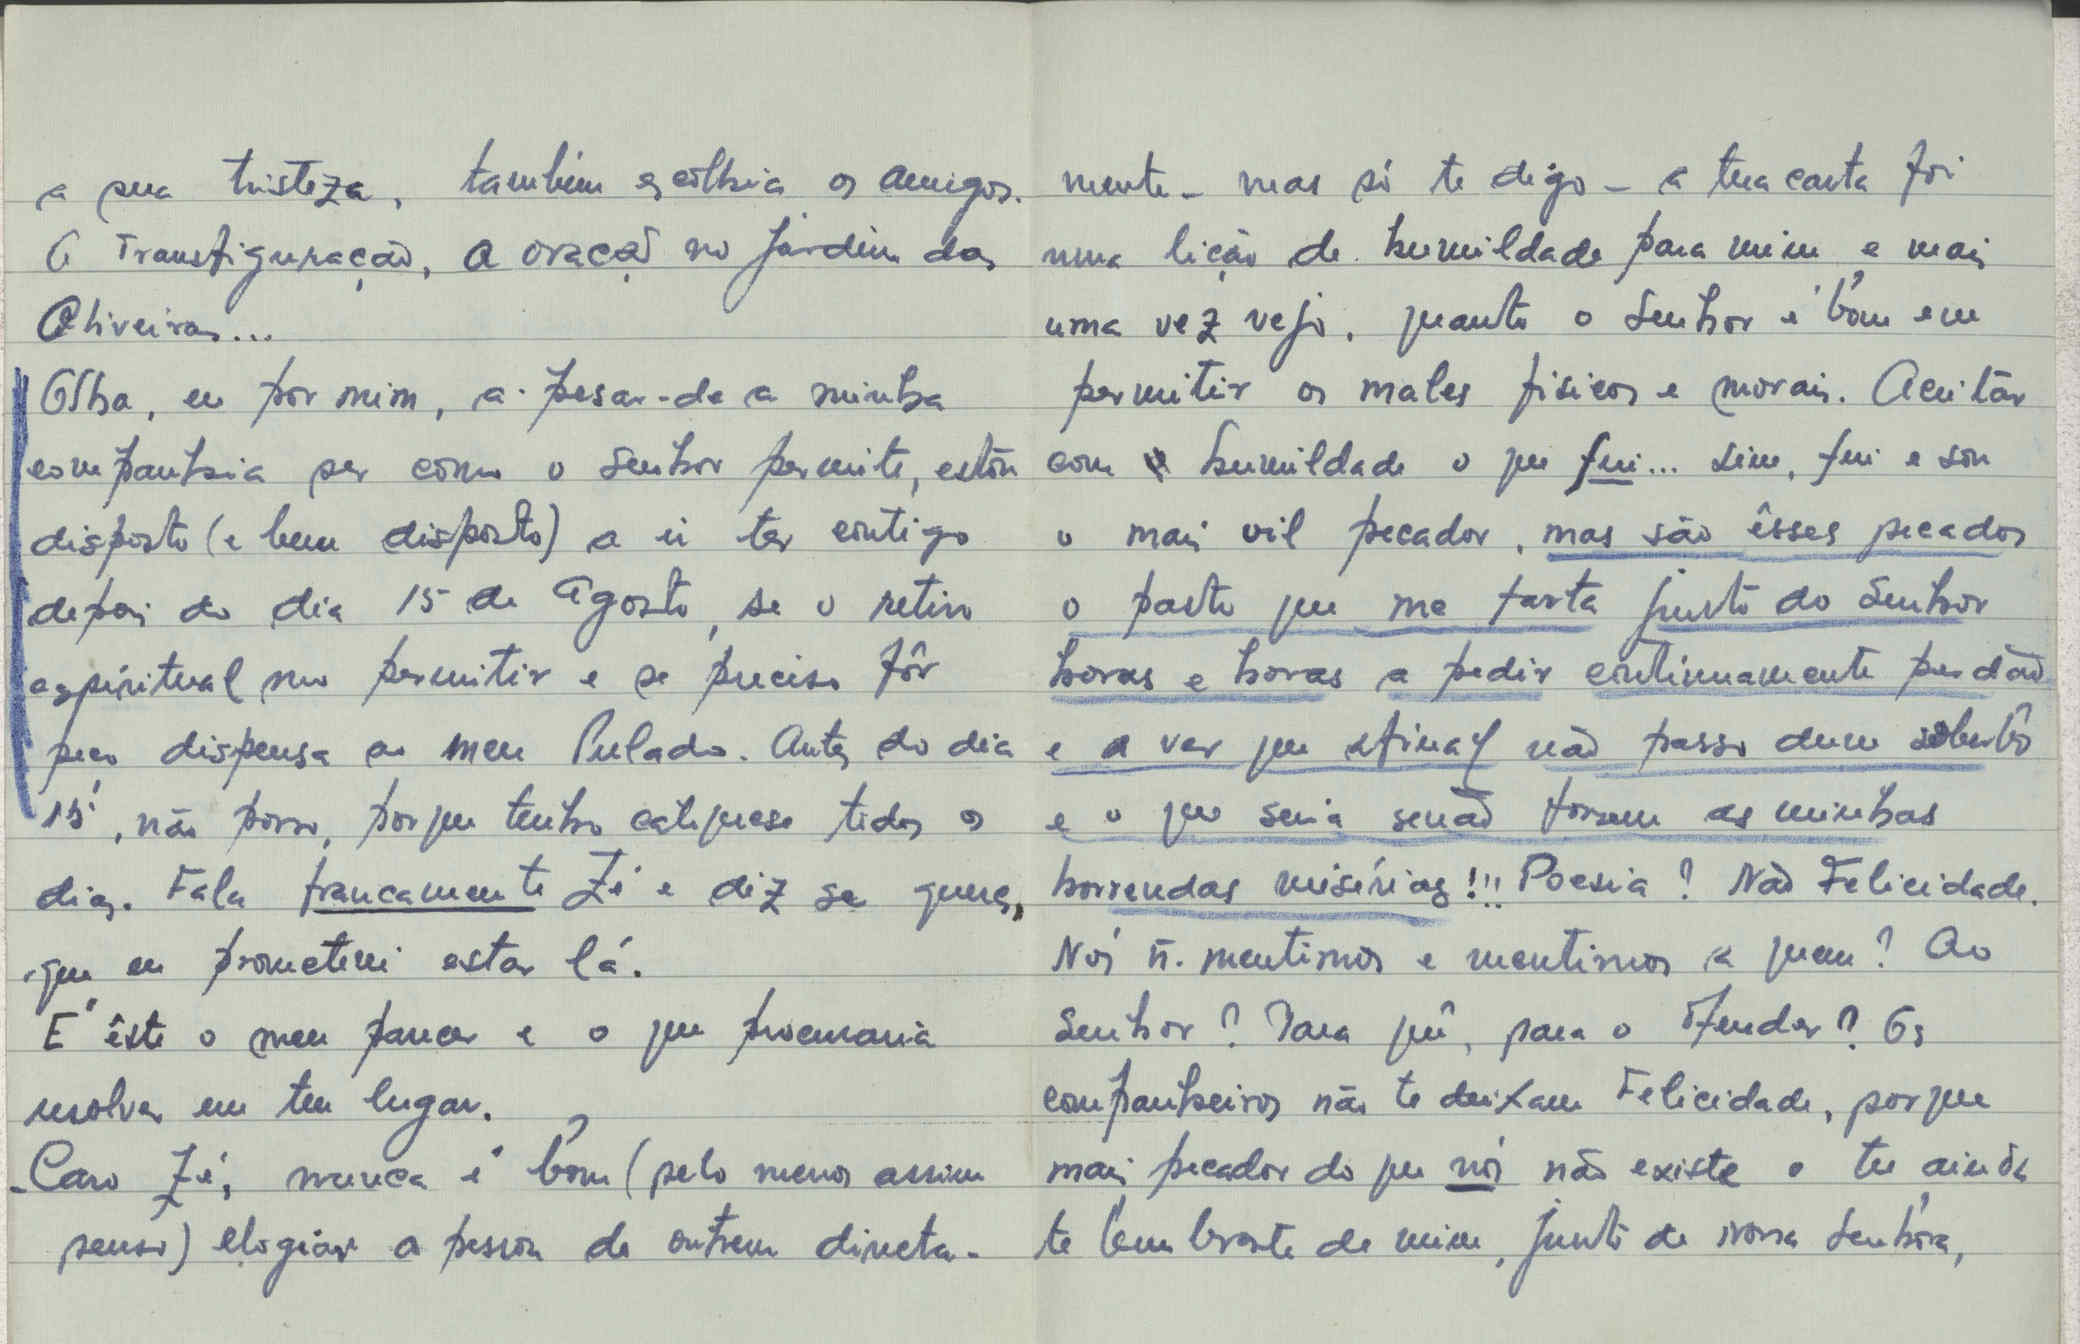 a sua tristeza, também escolhia os amigos.
A Transfiguração, a oração no Jardim das
Oliveiras...
Olha, eu por mim, a-pesar-de a minha
companhia ser como o Senhor permite, estou
disposto (e bem disposto) a ir ter contigo
depois do dia 15 de Agosto, se o retiro
espiritual mo permitir e se preciso fôr
peço dispensa ao meu Prelado. Antes do dia
15, não posso, porque tenho catequese todos os
dias. Fala francamente Zé e diz se queres,
que eu prometi estar lá.
É êste o meu parecer e o que procuraria
resolver em teu lugar.
Caro Zé, nunca é bom (pelo menos assim
penso) elogiar a pessoa de outrem directa-
mente - mas só te digo - a tua carta foi
uma lição de humildade para mim e mais
uma vez vejo, quanto o Senhor é bom em
permitir os males físicos e morais. Aceitar
com humildade o que fui... sim, fui e sou
o mais vil pecador, mas são êsses pecados
o pasto que me farta junto do Senhor
horas e horas a pedir continuamente perdão
e a ver que afinal não passo dum soberbo
e o que seria senão fossem as minhas
horrendas misérias!!! Poesia? Não Felicidade.
Nós ñ. mentimos e mentimos a quem? Ao
Senhor? Para quê, para o ofender? Os
companheiros não te deixam Felicidade, porque
mais pecador do que nós não existe e tu ainda
te lembraste de mim, junto de nossa Senhora,